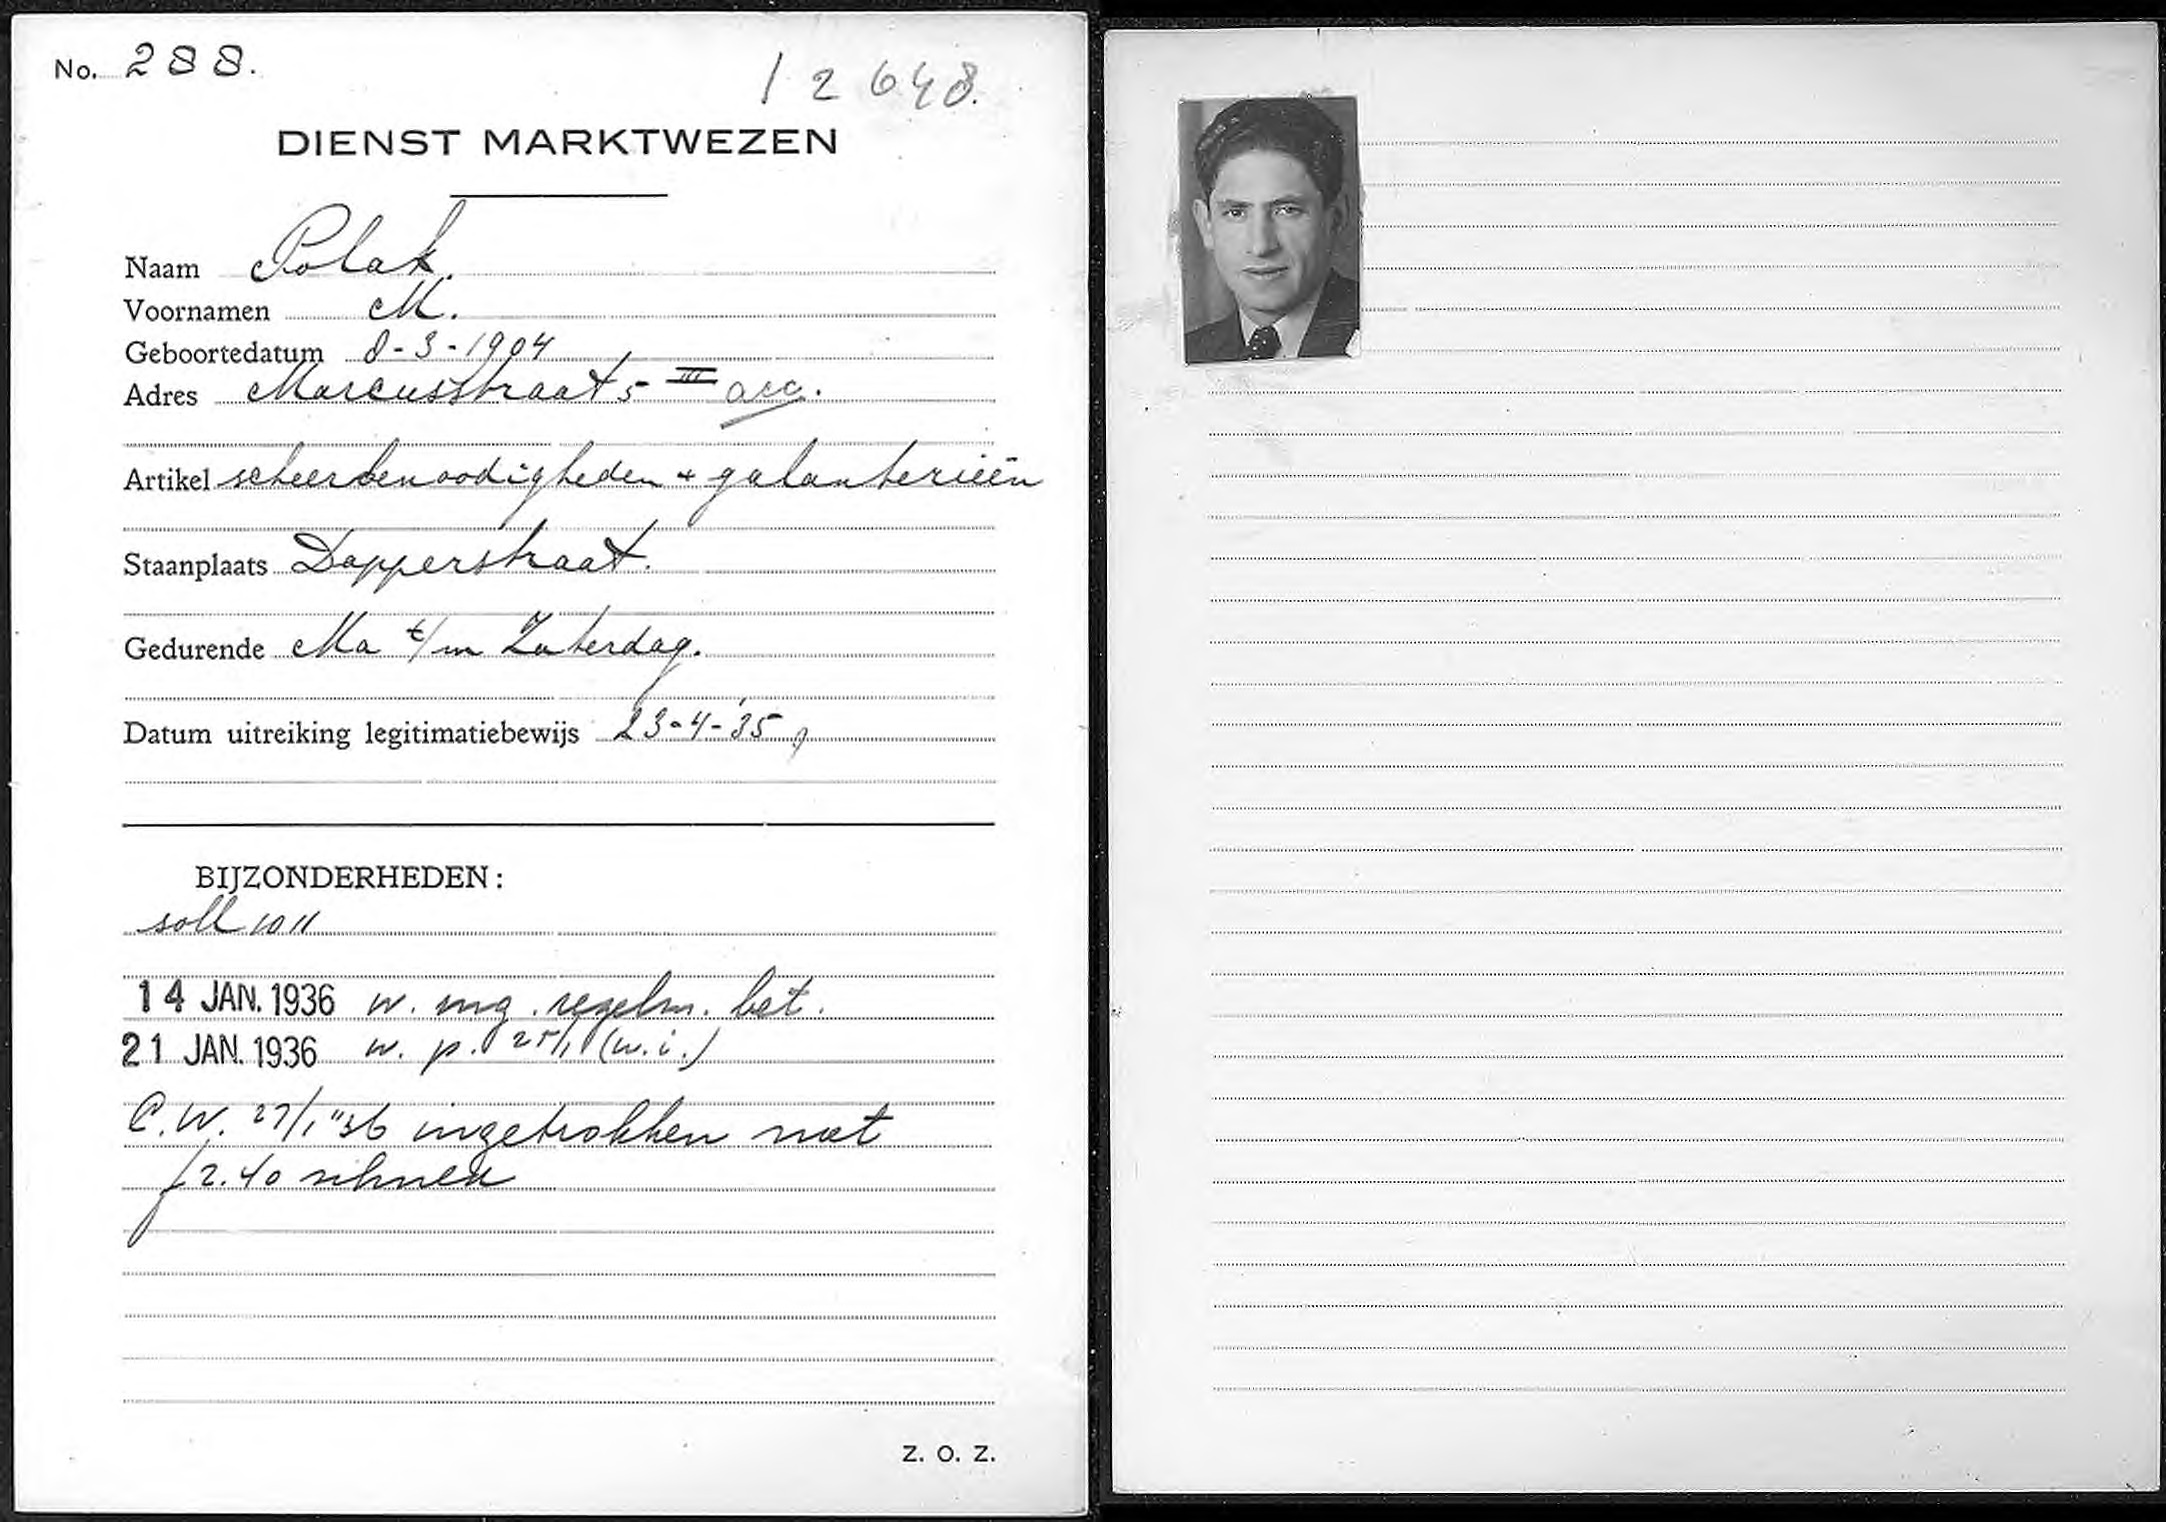 No. 288.
12648.
DIENST MARKTWEZEN
Naam Polak.
Voornamen M.
Geboortedatum 8-3-1904
Adres Marcusstraat 5 III acc.
Artikel scheerbenoodigheden + galanterieën
Staanplaats Dapperstraat.
Gedurende Ma t/m Zaterdag.
Datum uitreiking legitimatiebewijs 23-4-'35
BIJZONDERHEDEN:
soll 1011
14 JAN. 1936 w. mg. regelm. bet.
21 JAN. 1936 w. p. 25/1 (w.i.)
C.W. 27/1 '36 ingetrokken met
f 2.40
Z. O. Z.